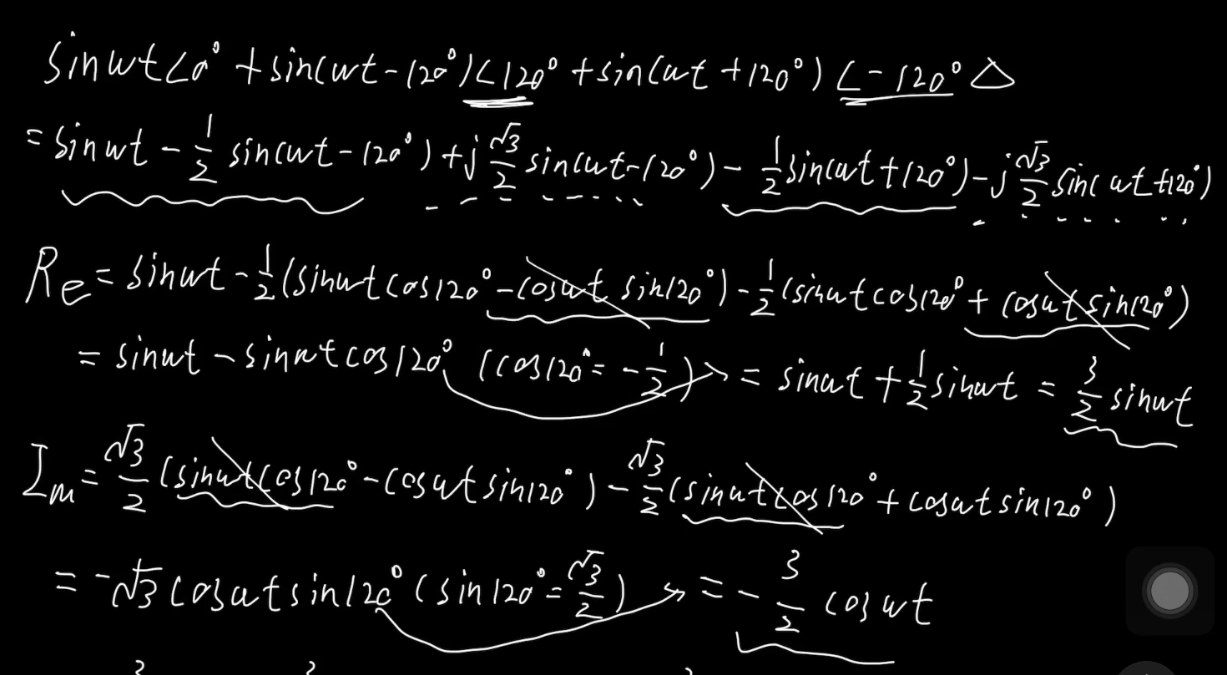 sinωt∠0° + sin(ωt-120°)∠120° + sin(ωt+120°)∠-120° △
= sinωt - 1/2 sin(ωt-120°) + j √3/2 sin(ωt-120°) - 1/2 sin(ωt+120°) - j √3/2 sin(ωt+120°)
Re = sinωt - 1/2 (sinωt cos120° - cosωt sin120°) - 1/2 (sinωt cos120° + cosωt sin120°)
= sinωt - sinωt cos120° (cos120° = -1/2) = sinωt + 1/2 sinωt = 3/2 sinωt
Im = √3/2 (sinωt cos120° - cosωt sin120°) - √3/2 (sinωt cos120° + cosωt sin120°)
= -√3 cosωt sin120° (sin120° = √3/2) = -3/2 cosωt